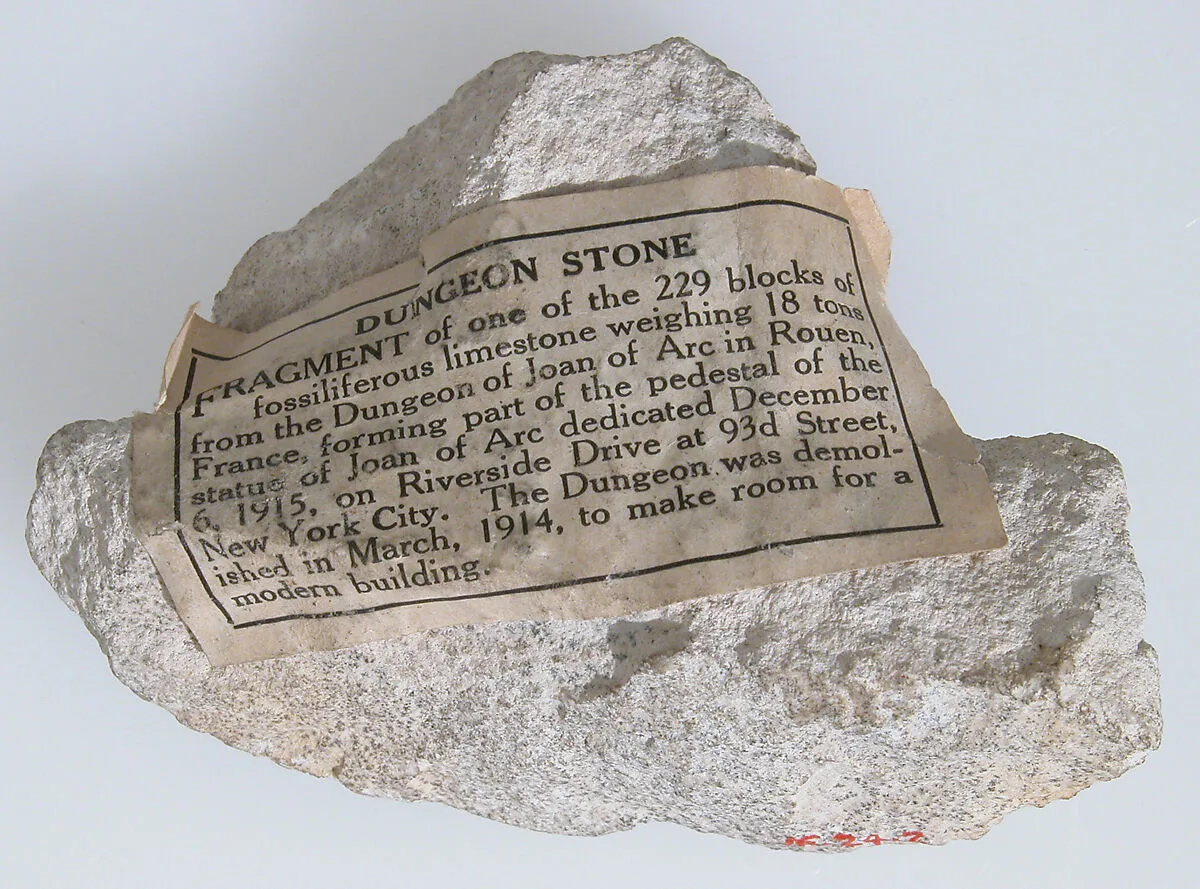 DUNGEON STONE
FRAGMENT of one of the 229 blocks of
fossiliferous limestone weighing 18 tons
from the Dungeon of Joan of Arc in Rouen,
France, forming part of the pedestal of the
statue of Joan of Arc dedicated December
6, 1915, on Riverside Drive at 93d Street,
New York City. The Dungeon was demol-
ished in March, 1914, to make room for a
modern building.